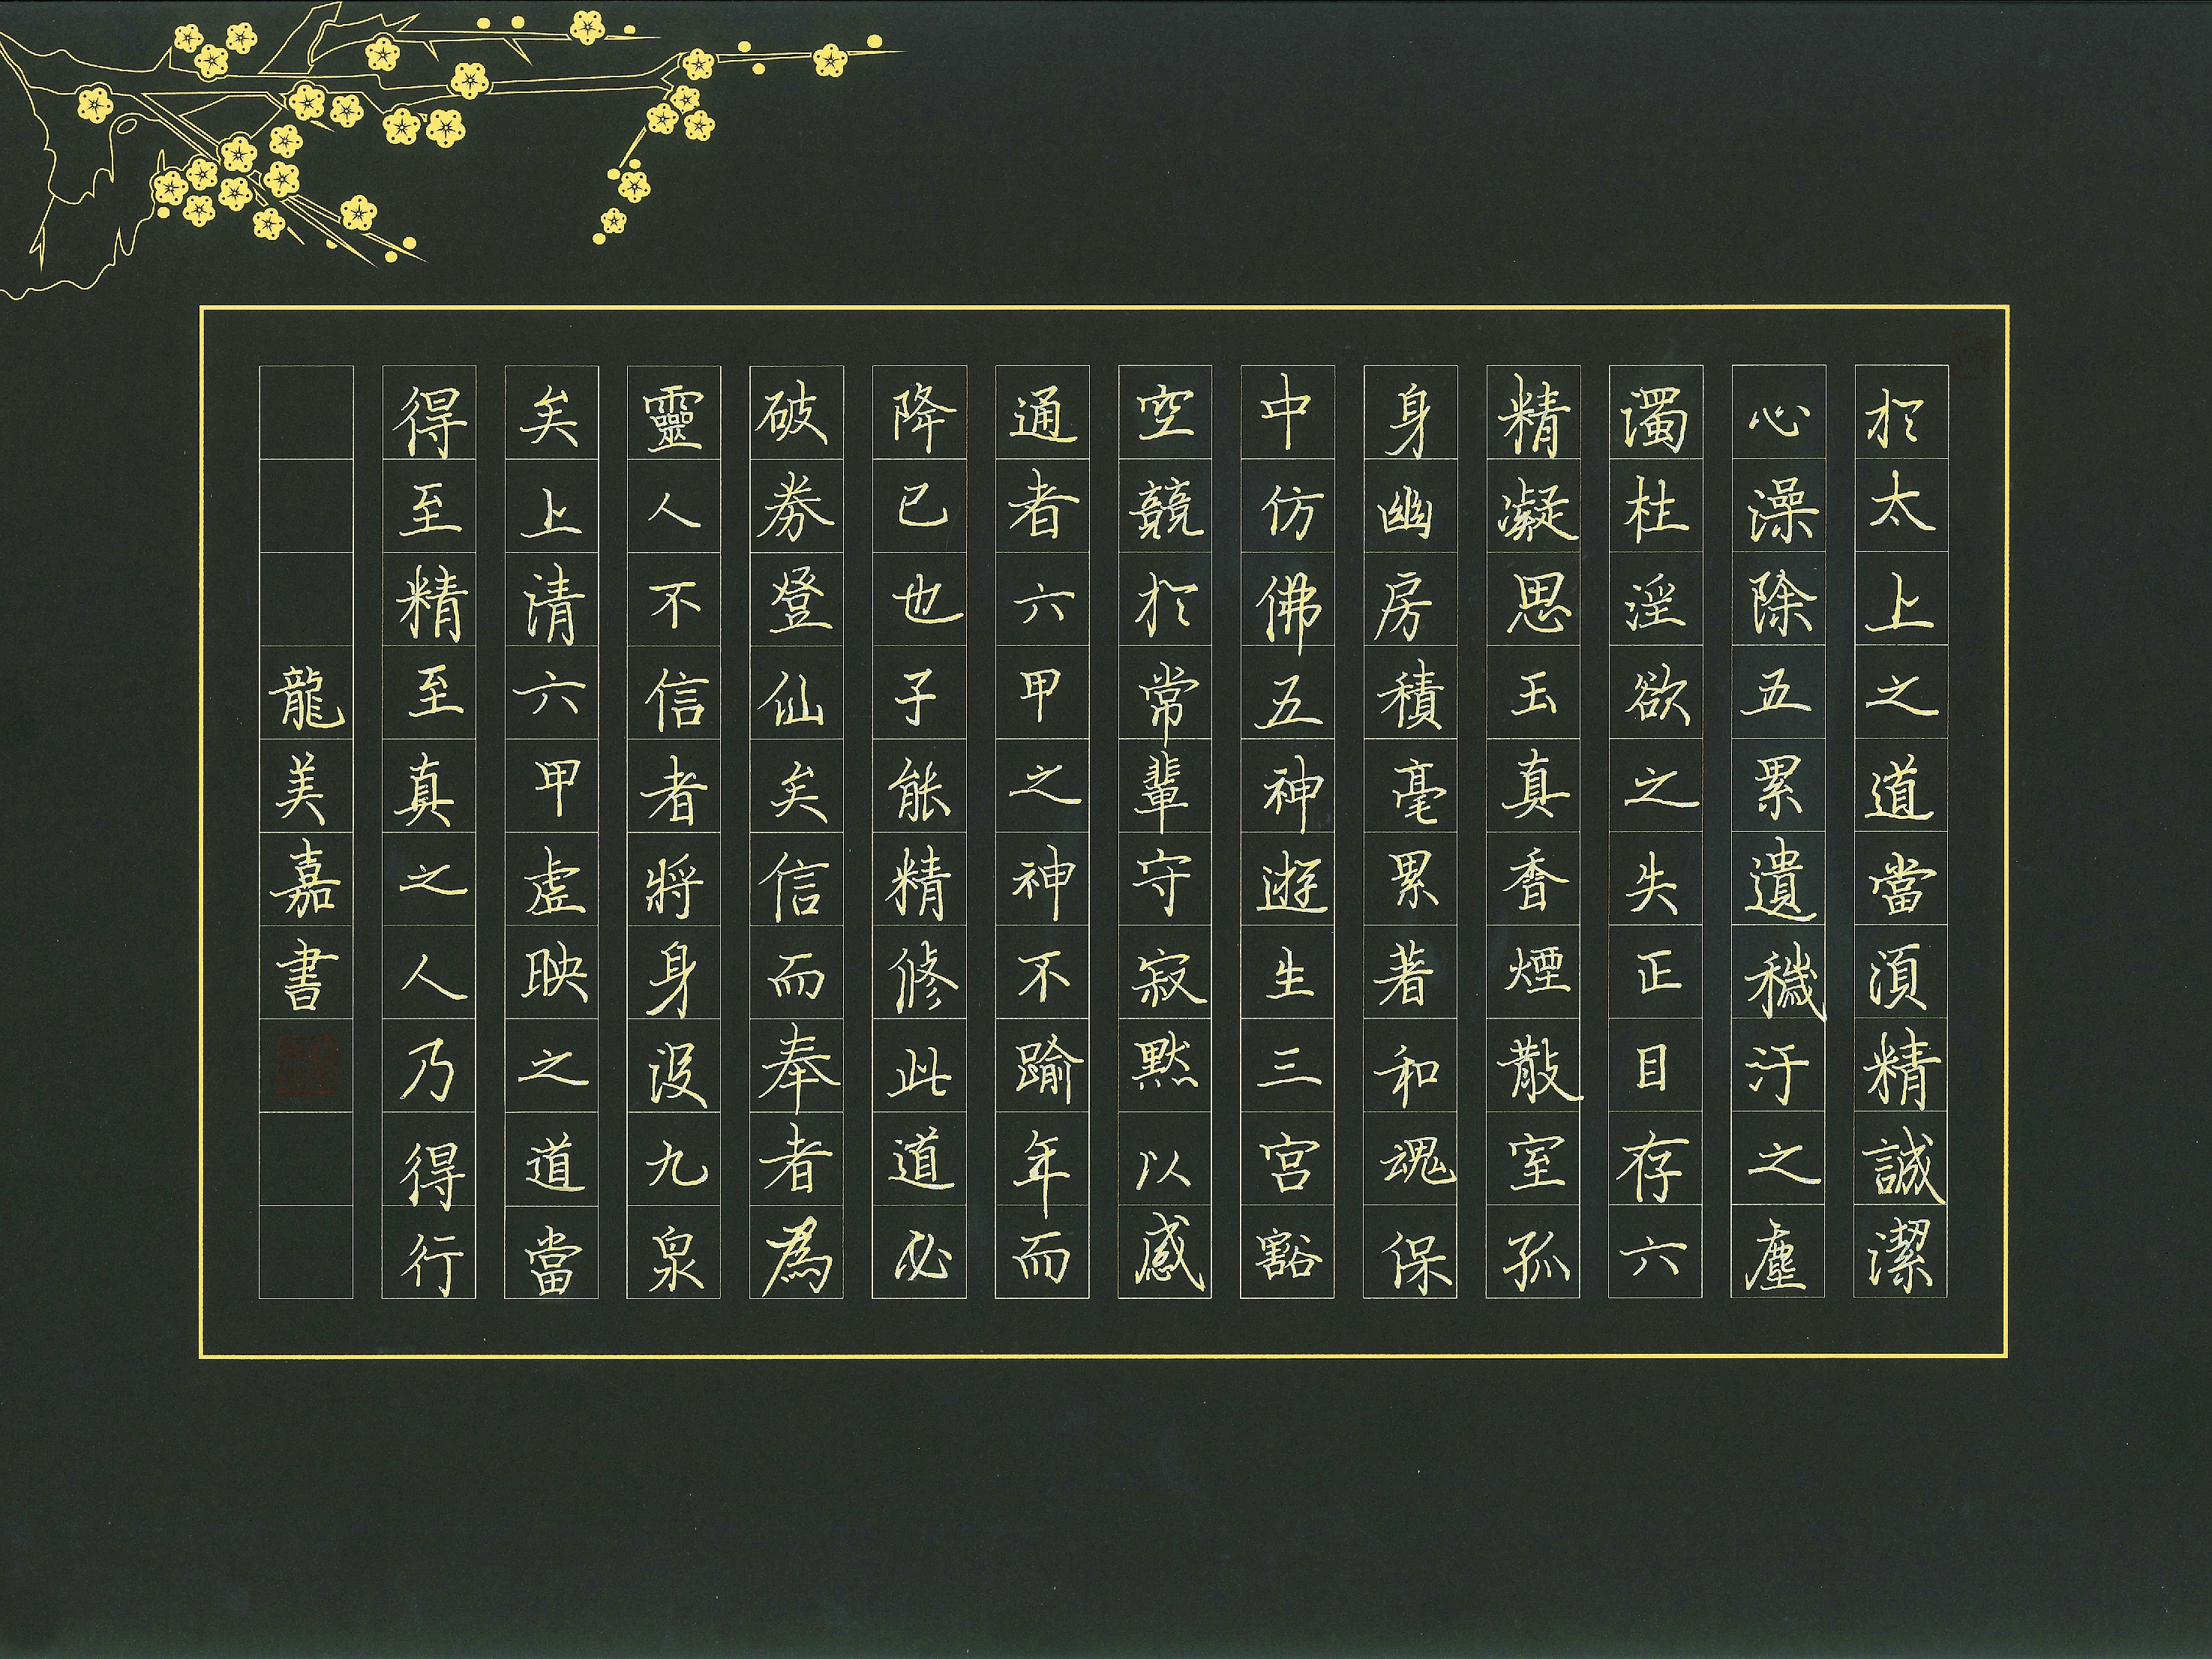 於太上之道當須精誠潔
心澡除五累遺穢汙之塵
濁杜淫欲之失正目存六
精凝思玉真香煙散室孤
身幽房積毫累著和魂保
中仿佛五神遊生三宮豁
空競於常輩守寂默以感
通者六甲之神不踰年而
降已也子能精修此道必
破券登仙矣信而奉者為
靈人不信者將身沒九泉
矣上清六甲虛映之道當
得至精至真之人乃得行
龍美嘉書